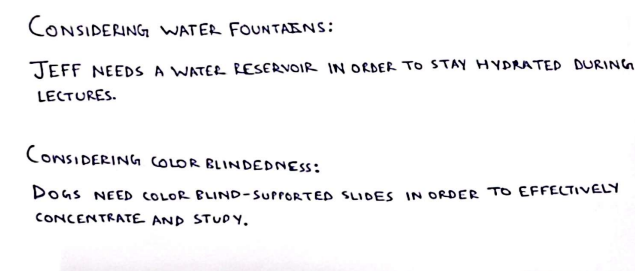 CONSIDERING WATER FOUNTAINS:
JEFF NEEDS A WATER RESERVOIR IN ORDER TO STAY HYDRATED DURING
LECTURES.
CONSIDERING COLOR BLINDEDNESS:
DOGS NEED COLOR BLIND-SUPPORTED SLIDES IN ORDER TO EFFECTIVELY
CONCENTRATE AND STUDY.